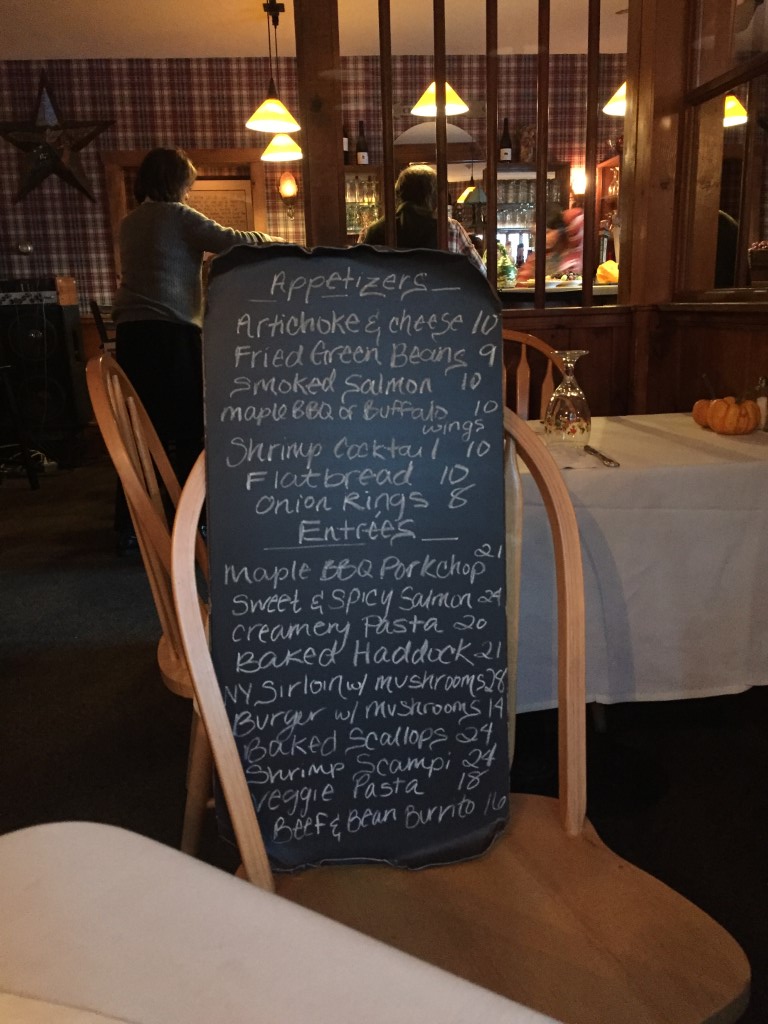 Appetizers
Artichoke & cheese 10
Fried Green Beans 9
Smoked Salmon 10
maple BBQ or Buffalo 10
wings
Shrimp Cocktail 10
Flatbread 10
Onion Rings 8
Entrees
Maple BBQ Porkchop 21
Sweet & Spicy Salmon 24
Creamery Pasta 20
Baked Haddock 21
NY Sirloin w/ mushrooms 28
Burger w/ mushrooms 14
Baked Scallops 24
Shrimp Scampi 24
Veggie Pasta 18
Beef & Bean Burrito 16